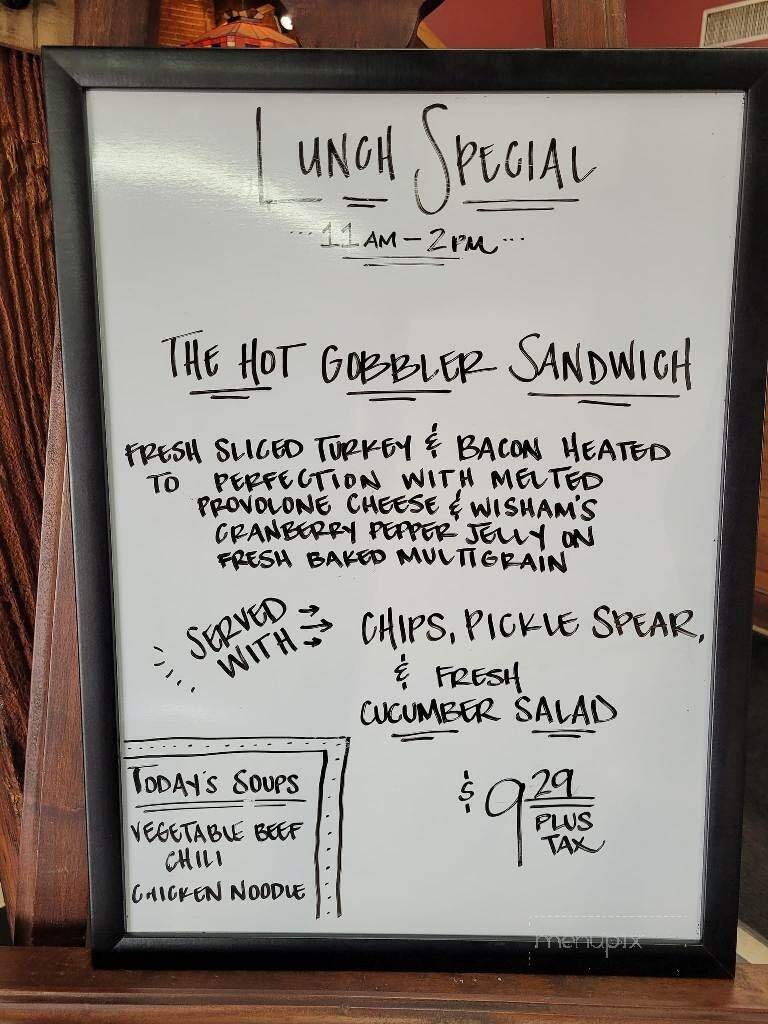 LUNCH SPECIAL
...11 AM - 2 PM...
THE HOT GOBBLER SANDWICH
FRESH SLICED TURKEY & BACON HEATED
TO PERFECTION WITH MELTED
PROVOLONE CHEESE & WISHAM'S
CRANBERRY PEPPER JELLY ON
FRESH BAKED MULTIGRAIN
SERVED
WITH
CHIPS, PICKLE SPEAR,
& FRESH
CUCUMBER SALAD
TODAY'S SOUPS
VEGETABLE BEEF
CHILI
CHICKEN NOODLE
$9 29
PLUS
TAX
menupix